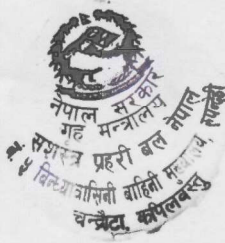 नेपाल सरकार
गृह मन्त्रालय
सशस्त्र प्रहरी बल नेपाल
नं. ५ बिन्ध्यवासिनी बाहिनी रुपन्देही
चन्द्रौटा, कपिलवस्तु